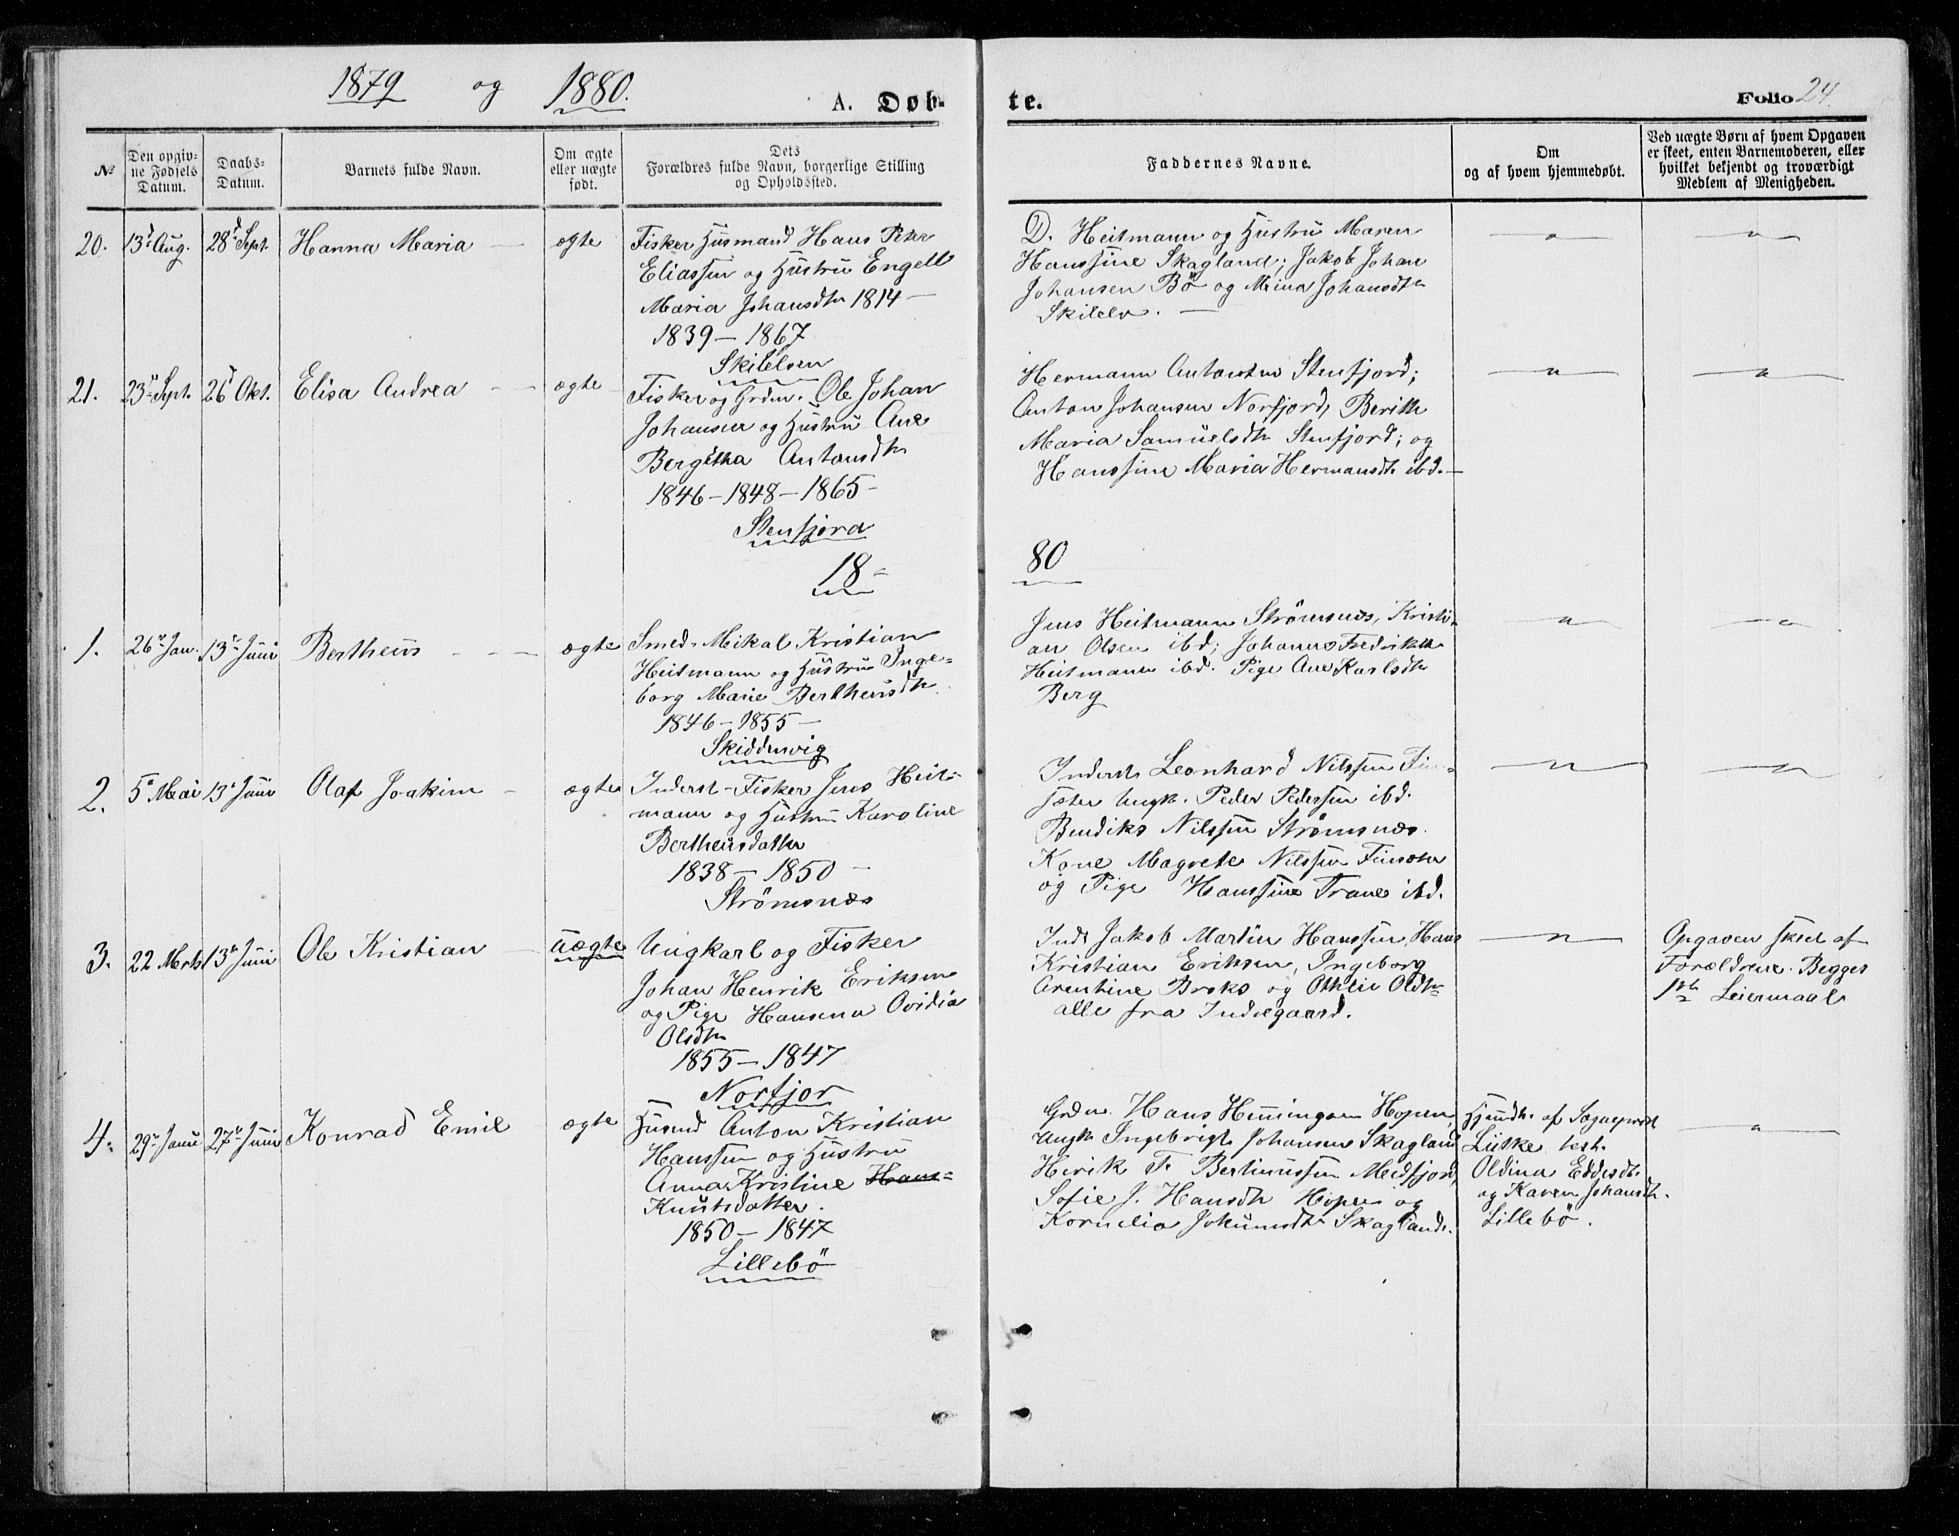 1879 og 1880.
A. Døbte.
Folio 24.
№
Den opgivne Fødsels Datum.
Daabs-Datum.
Barnets fulde Navn.
Om ægte eller uægte født.
Dets Forældres fulde Navn, borgerlige Stilling og Opholdssted.
Faddernes Navne.
Om og af hvem hjemmedøbt.
Ved uægte Børn af hvem Opgaven er skeet, enten Barnemoderen, eller hvilket bekjendt og troværdigt Medlem af Menigheden.
20. 13d Aug. 28d Sept. Hanna Maria — ægte
Fisker Husmand Hans Peter
Eliassen og Hustru Engell
Maria Johansdtr 1814 —
1839 — 1867
Skilelven
D. Heitmann og Hustru Maren
Hanssine Skagland; Jakob Johan
Johansen Bö og Mina Johansdtr
Skilelv. —
21. 23 Sept. 26 Okt. Elisa Andrea — ægte
Fisker og Grdm. Ole Johan
Johansen og Hustru Ane
Bergitha Antonsdtr
1846 — 1848 — 1865 —
Stenfjord
Hermann Antonsen Stenfjord;
Anton Johansen Norfjord, Berith
Maria Samuelsdtr Stenfjord; og
Hanssine Maria Hermansdtr ibd. —
18 80
1. 26 Jan. 13 Juni Bertheus — ægte
Smed Mikal Kristian
Heitmann og Hustru Inge-
borg Marie Bertheusdtr
1846 — 1855 —
Skiddenvig
Jens Heitmann Strömsnæs, Kristi-
an Olsen ibd; Johanna Fredrikke
Heitmann ibd. Pige Ane Karlsdtr
Berg
2. 5 Mai 13 Juni Olaf Joakim — ægte
Inderst — Fisker Jens Heit-
mann og Hustru Karoline
Bertheusdatter
1838 — 1850 —
Strömsnæs
Inderst Leonhard Nilssen Fin-
sæter Ungk. Peder Pedersen ibd.
Bendiks Nilssen Strömsnæs.
Kone Magrete Nilssen Finsæter
og Pige Hanssine Trane ibd.
3. 22 Marts 13 Juni Ole Kristian — uægte
Ungkarl og Fisker
Johan Henrik Eriksen
og Pige Hansena Ovidia
Olsdtr
1855 — 1847
Norfjor
Inds Jakob Martin Hanssen, Hans
Kristian Eriksen, Ingeborg
Arentine Broks og Othelie Olsdtr
alle fra Indregaard.
Opgaven skeet af
Forældrene. Begges
1ste Leiermaal
4. 29 Janu 27 Juni Konrad Emil ægte
Husmd Anton Kristian
Hanssen og Hustru
Anna Kristine Hans-
Knutsdatter.
1850 — 1847
Lillebö
Grdm. Hans Henningsen Hopen,
Ungk Ingebrigt Johansen Skagland
Henrik F. Bertinussen Medfjord,
Sofie J. Hansdtr Hopen og
Kornelia Joh Skagland.
Hjemdt. af Sogneprest
Lütke test.
Oldina Eddesdtr
og Karen Johansdtr.
Lillebö.